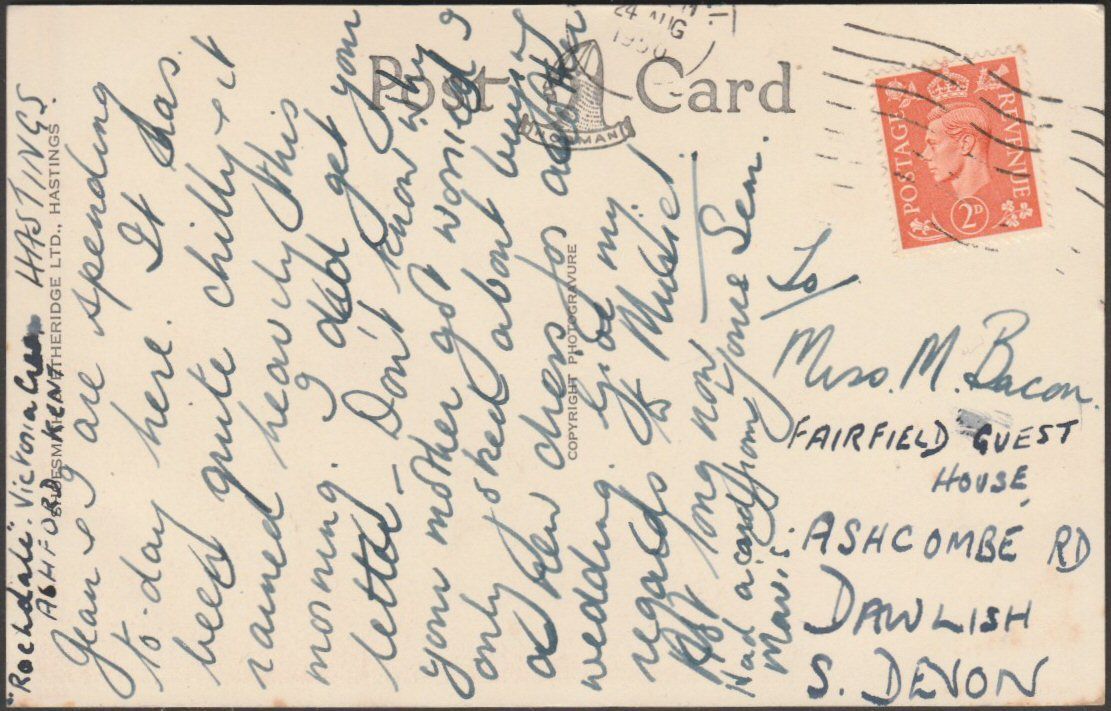 Post Card
NORMAN
24 AUG
1950
POSTAGE REVENUE
2D
SHOESMITH & ETHERIDGE LTD., HASTINGS
COPYRIGHT PHOTOGRAVURE
"Rochdale" Victoria Cres
ASHFORD KENT
HASTINGS.
Jean & I are spending
to-day here. It has
been quite chilly & it
rained heavily this
morning. I did get your
letter – Don't know why
your mother got worried I
only joked about buying
a new dress for another
wedding. Give my
regards to Muriel
Not long now Yours Sem.
Had a card from
Mavis
To
Miss. M. Bacon.
FAIRFIELD GUEST
HOUSE,
ASHCOMBE RD
DAWLISH
S. DEVON